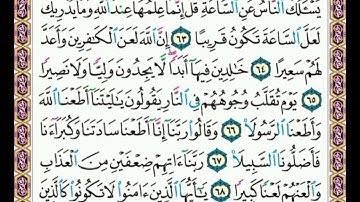 يَسْـَٔلُكَ ٱلنَّاسُ عَنِ ٱلسَّاعَةِ قُلْ إِنَّمَا عِلْمُهَا عِندَ ٱللَّهِ وَمَا يُدْرِيكَ
لَعَلَّ ٱلسَّاعَةَ تَكُونُ قَرِيبًا ٦٣ إِنَّ ٱللَّهَ لَعَنَ ٱلْكَٰفِرِينَ وَأَعَدَّ
لَهُمْ سَعِيرًا ٦٤ خَٰلِدِينَ فِيهَآ أَبَدًا لَّا يَجِدُونَ وَلِيًّا وَلَا نَصِيرًا
٦٥ يَوْمَ تُقَلَّبُ وُجُوهُهُمْ فِى ٱلنَّارِ يَقُولُونَ يَٰلَيْتَنَآ أَطَعْنَا ٱللَّهَ
وَأَطَعْنَا ٱلرَّسُولَا۠ ٦٦ وَقَالُوا۟ رَبَّنَآ إِنَّآ أَطَعْنَا سَادَتَنَا وَكُبَرَآءَنَا
فَأَضَلُّونَا ٱلسَّبِيلَا۠ ٦٧ رَبَّنَآ ءَاتِهِمْ ضِعْفَيْنِ مِنَ ٱلْعَذَابِ
وَٱلْعَنْهُمْ لَعْنًا كَبِيرًا ٦٨ يَٰٓأَيُّهَا ٱلَّذِينَ ءَامَنُوا۟ لَا تَكُونُوا۟ كَٱلَّذِينَ